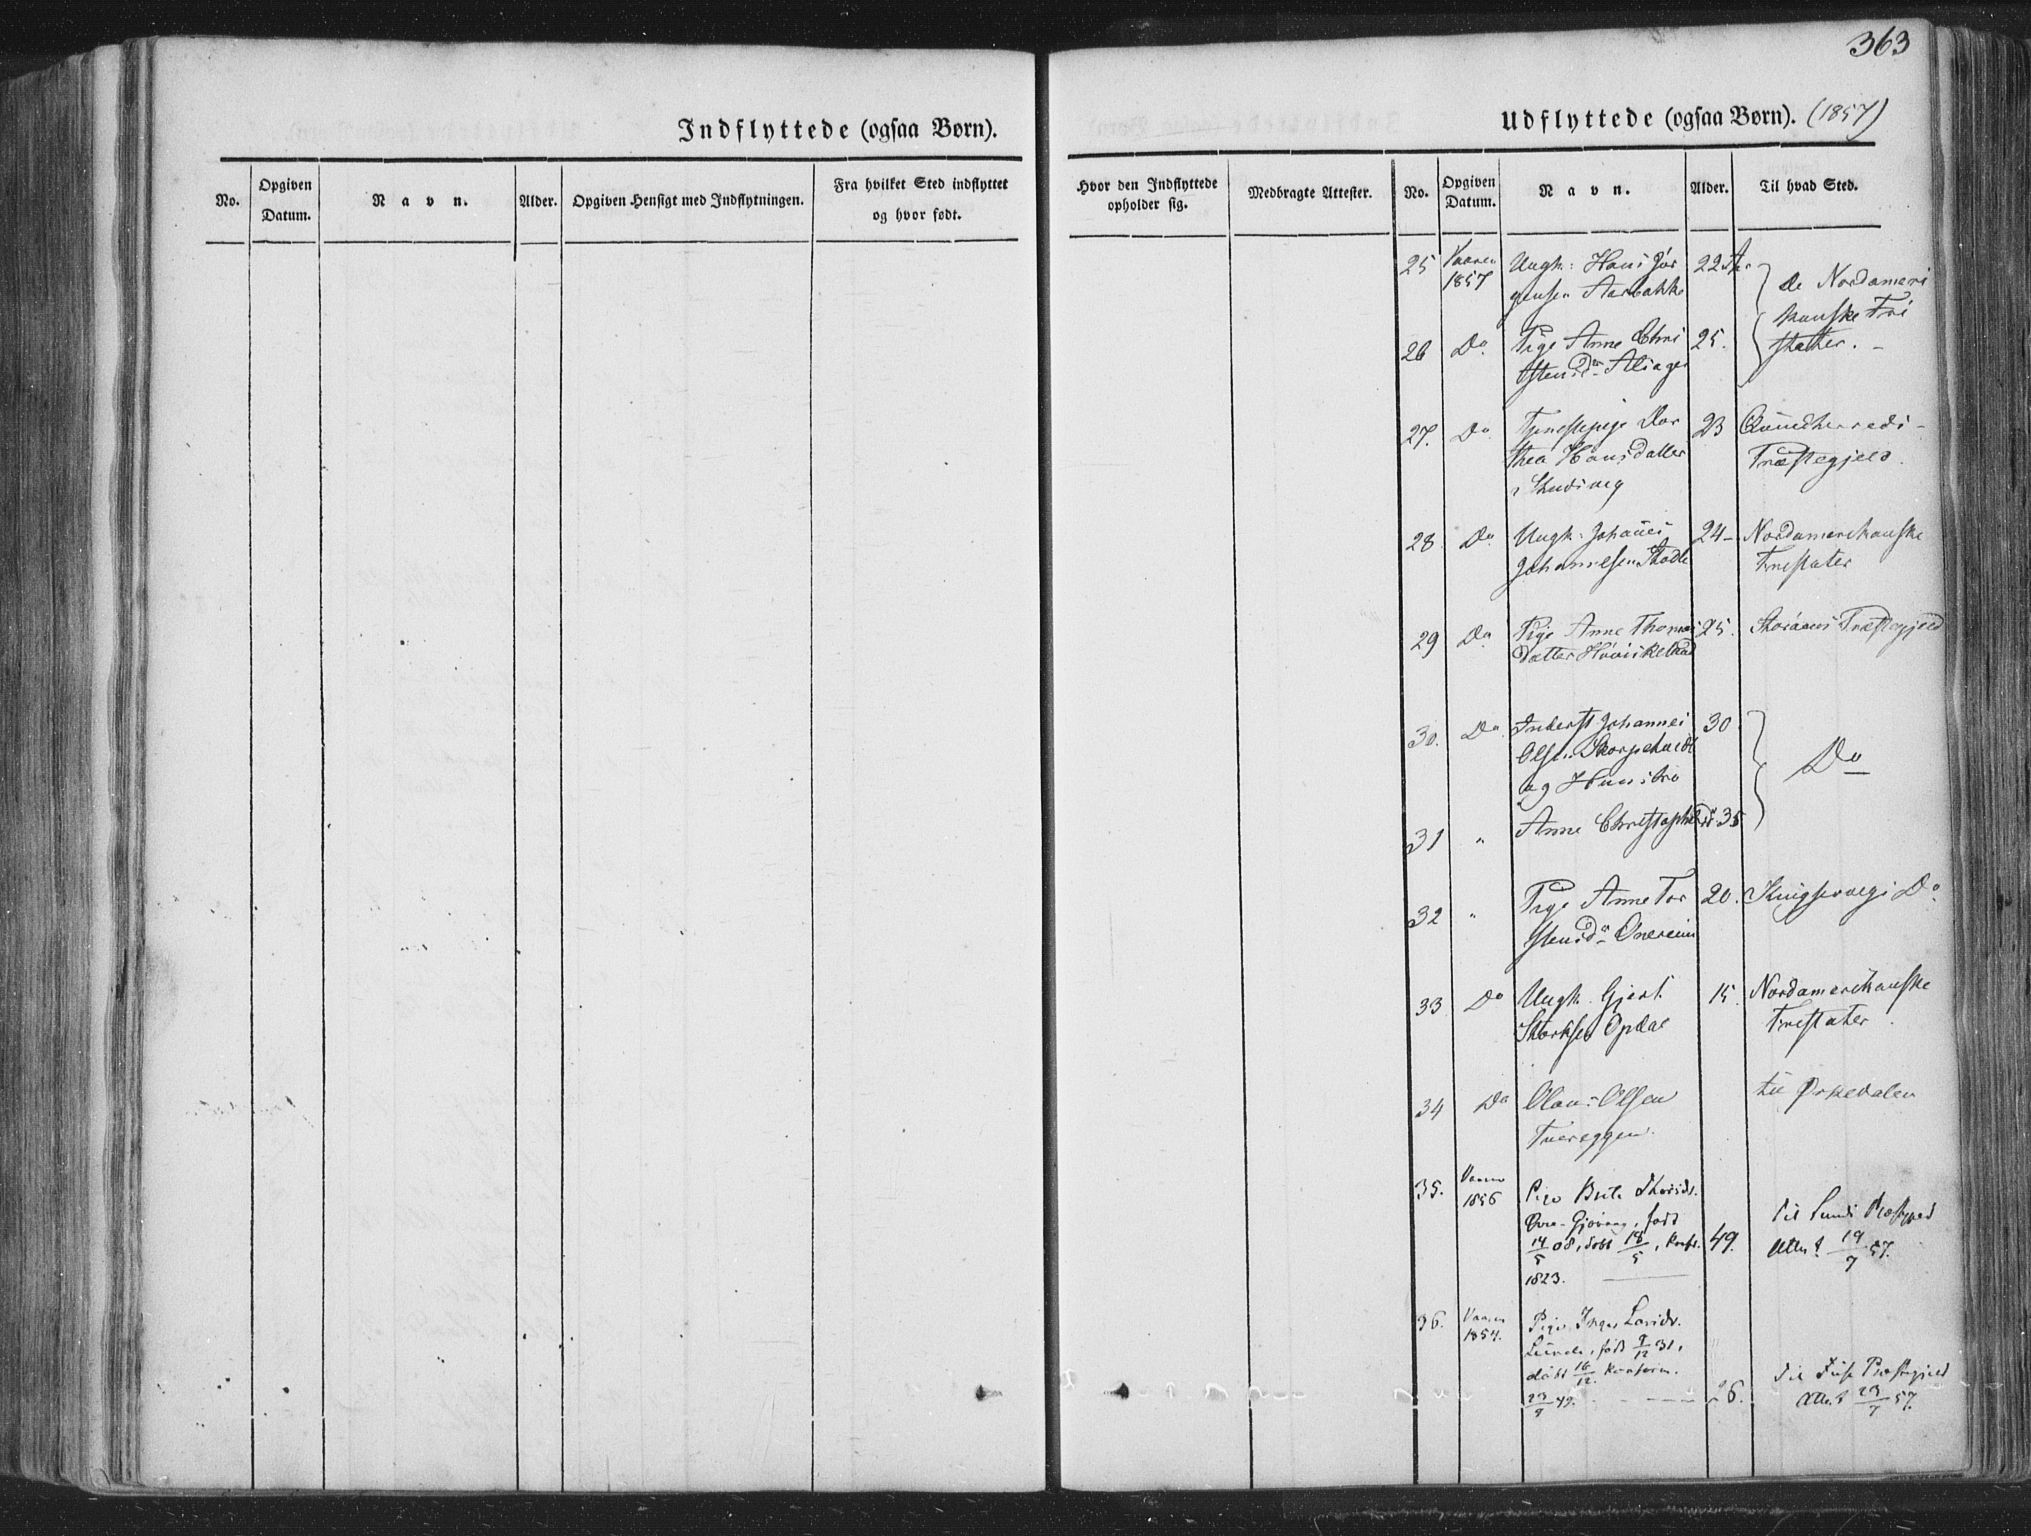 363
Indflyttede (ogsaa Børn).
Udflyttede (ogsaa Børn). (1857)
No.
Opgiven Datum.
Navn.
Alder.
Opgiven Hensigt med Indflytningen.
Fra hvilket Sted indflyttet og hvor født.
Hvor den Indflyttede opholder sig.
Medbragte Attester.
No.
Opgiven Datum.
Navn.
Alder.
Til hvad Sted.
25 Vaaren 1857 Ungk: Hans Jør
gensen Aarbakke 22 Aar
de Nordameri
kanske Fri
stater.
26 Do Pige Anne Chri
stensdr 25.
27. Do Tjenestepige Dor
thea Hansdatter 23 Qvindherreds
Præstegjeld.
28 Do Ungk: Johannes
Johannesen 24 Nordamerikanske
Fristater
29 Do Pige Anne Thomas
datter 25. Præstegjeld
30. Do Inderst Johannes
Olsen 30
og Hustru
Do
31 " Anne Christophersdr 35
32 " Pige Anne Tor
stensd 20. Do
33 Do Ungk. Gjert
Opdal 15 Nordamerikanske
Fristater.
34 Do Olaus Olsen
Tvereggen til Ørkedalen
35. Vaaren 1856 Pige Brite
Øvre-Gjøvaag, født
14/5 08, døbt 18/5, konf. 49.
1823.
til Lunds Præstgjeld
Attest 19/7 57.
36. Vaaren 1854. Pige Inger Larsdr.
Lunde, født 9/12 31,
døbt 16/12. konfirm.
23/9 49. 26.
til Fuse Præstegjeld
Attest 23/7 57.